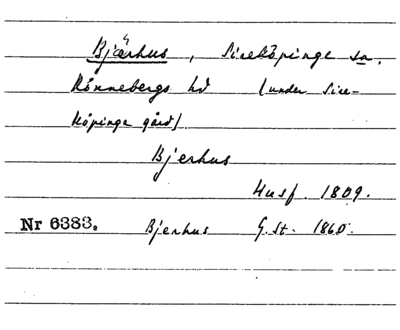 Bjärhus, Sireköpinge sn.
Rönnebergs hd (under Sire-
köpinge gård)
Bjerhus
Husf. 1809.
Nr 6383. Bjerhus G.St. 1860.